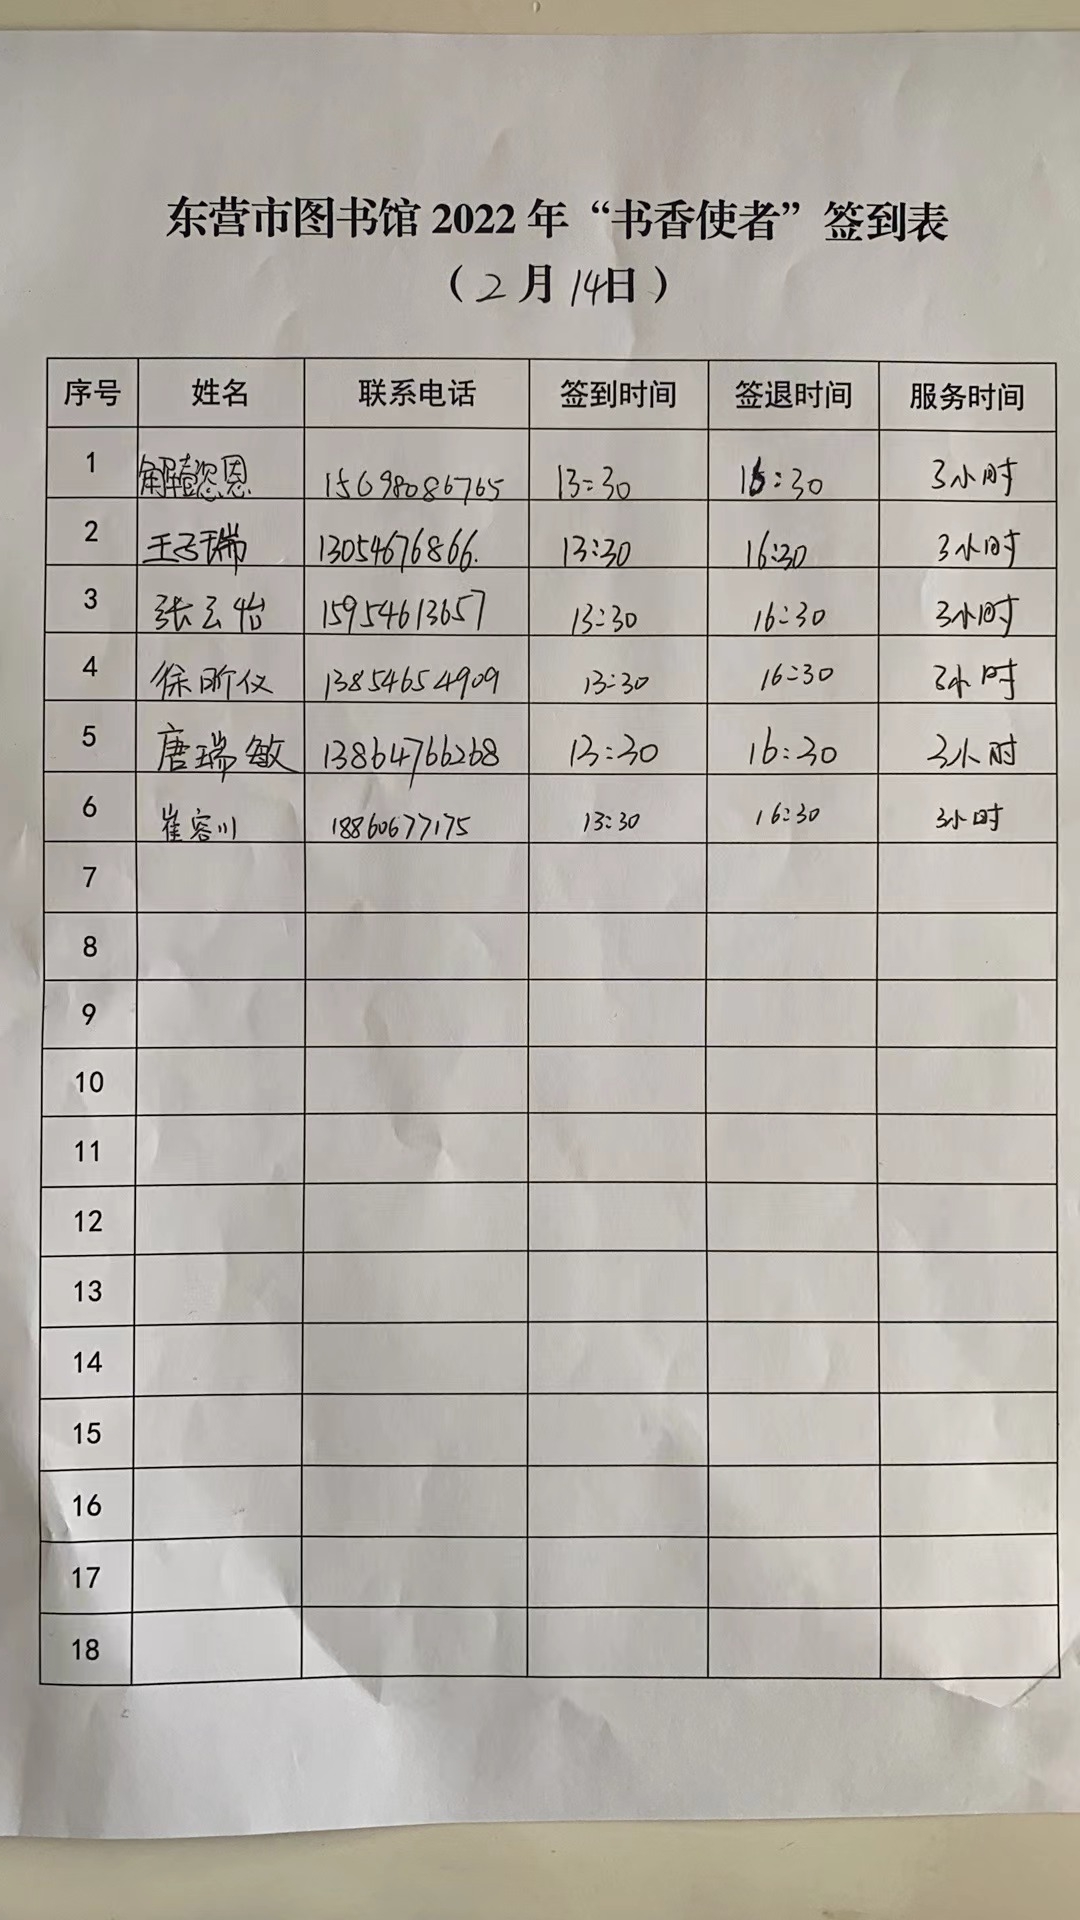 东营市图书馆 2022 年“书香使者”签到表
（2 月 14日）
序号 姓名 联系电话 签到时间 签退时间 服务时间
1 15698086765 13:30 16:30 3小时
2 王子瑞 13054676866. 13:30 16:30 3小时
3 张云怡 15954613657 13:30 16:30 3小时
4 徐昕仪 13854654909 13:30 16:30 3小时
5 唐瑞敏 13864766268 13:30 16:30 3小时
6 崔容川 18860677175 13:30 16:30 3小时
7
8
9
10
11
12
13
14
15
16
17
18